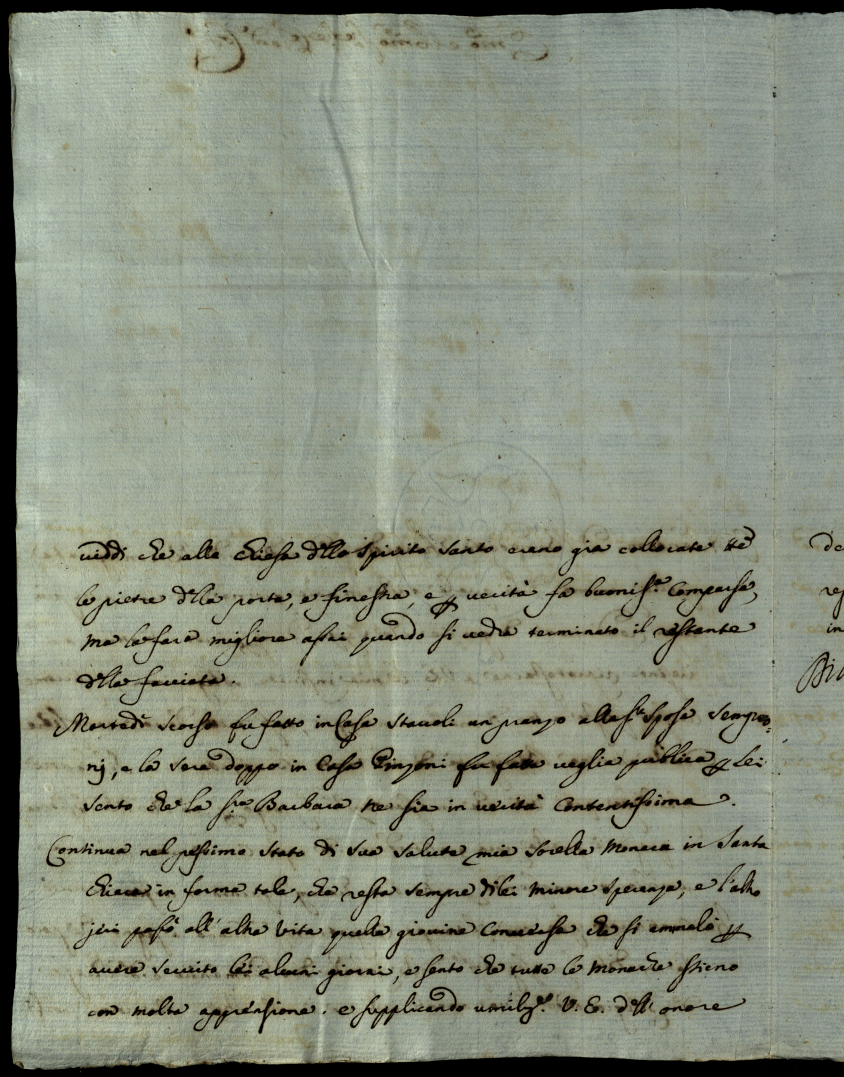 viddi che alla chiesa dello Spirito Santo erano gia collocate tte
le pietre della porta, e finestra, e p verità fa buoniss.a comparsa,
ma la farà migliore assai quando si vedra terminato il restante
della facciata.
Martedì scorso fu fatto in Casa Stavoli un pranzo alla S.ra Sposa Sempro=
nj, e la sera doppo in Casa Pinzoni fu fatta veglia publica p Lei
sento che la S.ra Barbara ne sia in verità contentissima.
Continua nel pessimo stato di sua salute mia sorella Monaca in Santa
Chiara in forma tale, che resta sempre di lei minore speranza, e l'altro
jeri passò all'altra vita quella giovine conversa che si ammalò p
avere servito lei alcuni giorni, e sento che tutte le Monache stieno
con molta apprensione. e supplicando umilm.e V. E. dell'onore
de
in